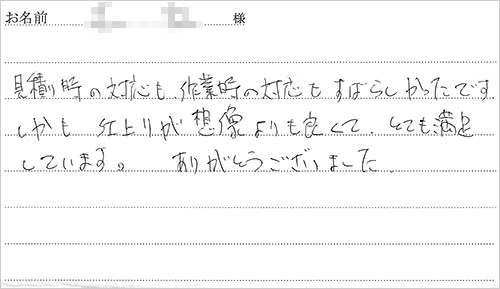 お名前 様
見積り時の対応も作業時の対応もすばらしかったです
しかも 仕上りが想像よりも良くて、とても満足
しています。 ありがとうございました.